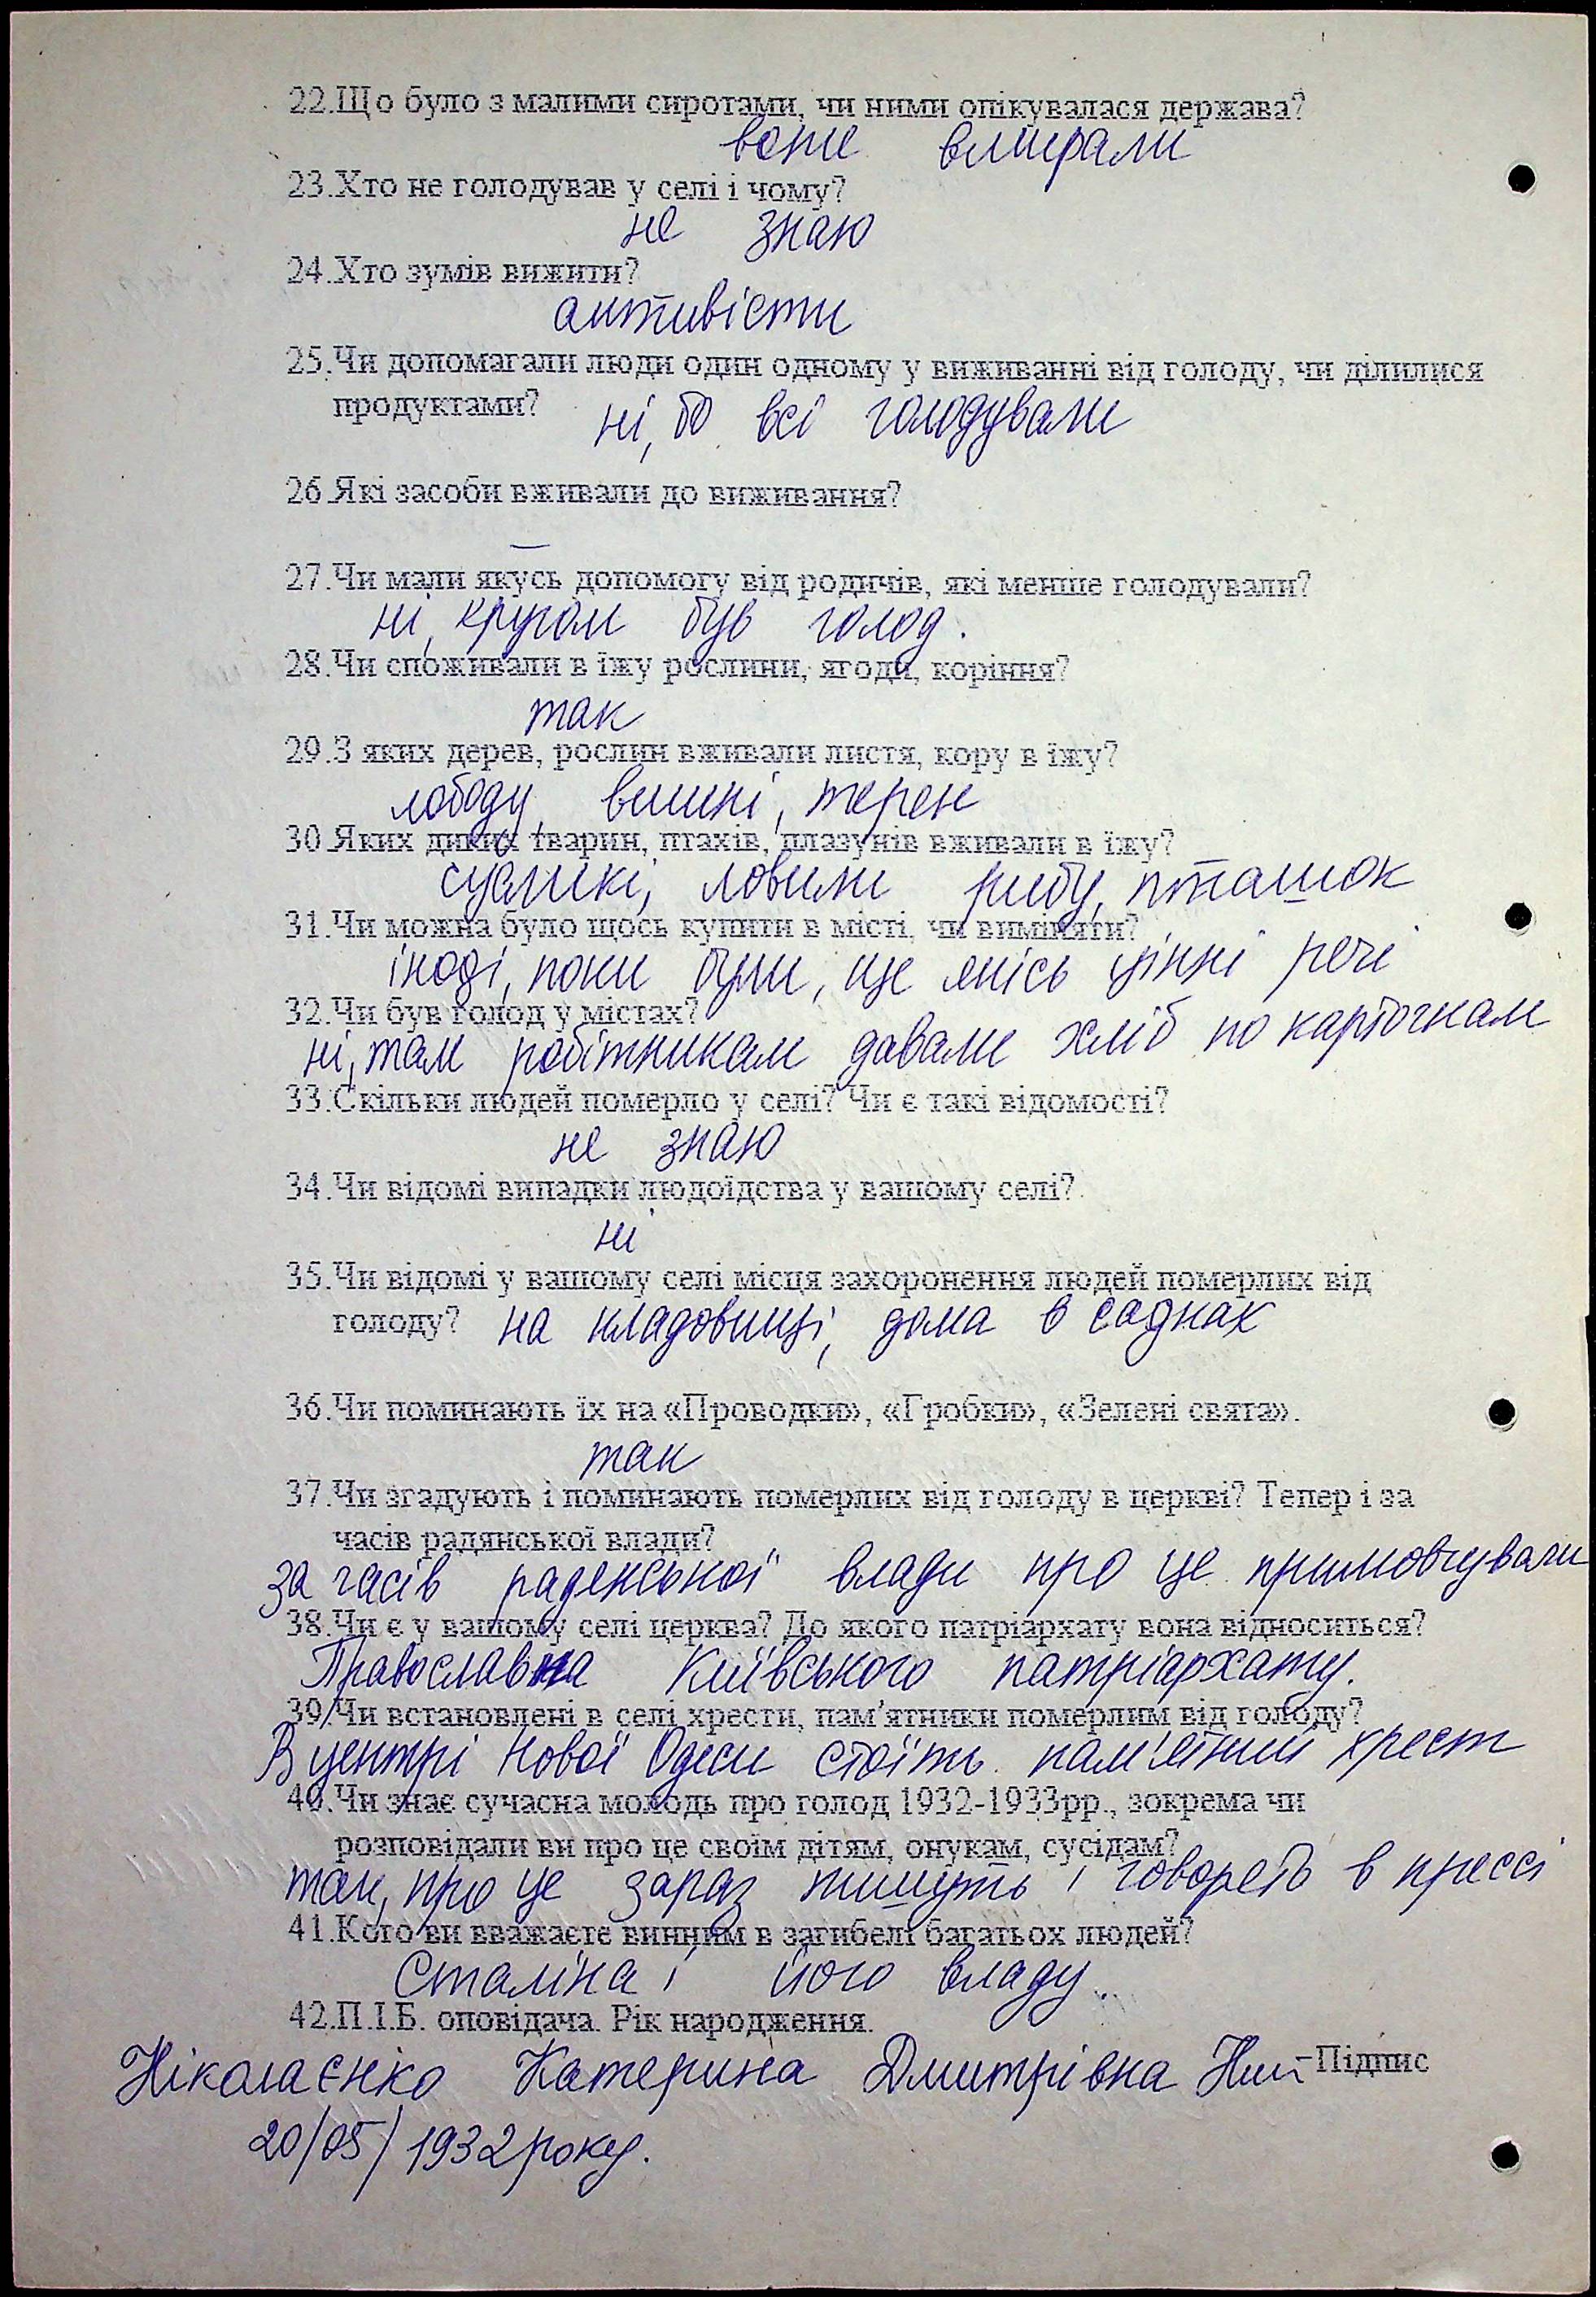 22.Що було з малими сиротами, чи ними опікувалася держава?
вони вмирали
23.Хто не голодував у селі і чому?
не знаю
24.Хто зумів вижити?
активісти
25.Чи допомагали люди один одному у виживанні від голоду, чи ділилися
продуктами? ні, бо всі голодували
26.Які засоби вживали до виживання?
—
27.Чи мали якусь допомогу від родичів, які менше голодували?
ні, кругом був голод.
28.Чи споживали в їжу рослини, ягоди, коріння?
так
29.З яких дерев, рослин вживали листя, кору в їжу?
лободу, вишні, терен
30.Яких диких тварин, птахів, плазунів вживали в їжу?
сусликі, ловили рибу, пташок
31.Чи можна було щось купити в місті, чи виміняти?
іноді, поки були, ще якісь цінні речі
32.Чи був голод у містах?
ні, там робітникам давали хліб по карточкам
33.Скільки людей померло у селі? Чи є такі відомості?
не знаю
34.Чи відомі випадки людоїдства у вашому селі?
ні
35.Чи відомі у вашому селі місця захоронення людей померлих від
голоду? на кладовищі, дома в садках
36.Чи поминають їх на «Проводки», «Гробки», «Зелені свята».
так
37.Чи згадують і поминають померлих від голоду в церкві? Тепер і за
часів радянської влади?
за часів радянської влади про це примовчували
38.Чи є у вашому селі церква? До якого патріархату вона відноситься?
Православна Київського патріархату.
39.Чи встановлені в селі хрести, пам'ятники померлим від голоду?
В центрі Нової Одеси стоїть пам'ятний хрест
40.Чи знає сучасна молодь про голод 1932-1933рр., зокрема чи
розповідали ви про це своїм дітям, онукам, сусідам?
так, про це зараз пишуть і говорять в прессі
41.Кого ви вважаєте винним в загибелі багатьох людей?
Сталіна і його владу.
42.П.І.Б. оповідача. Рік народження.
Ніколаєнко Катерина Дмитрівна Підпис
20/05/1932 року.